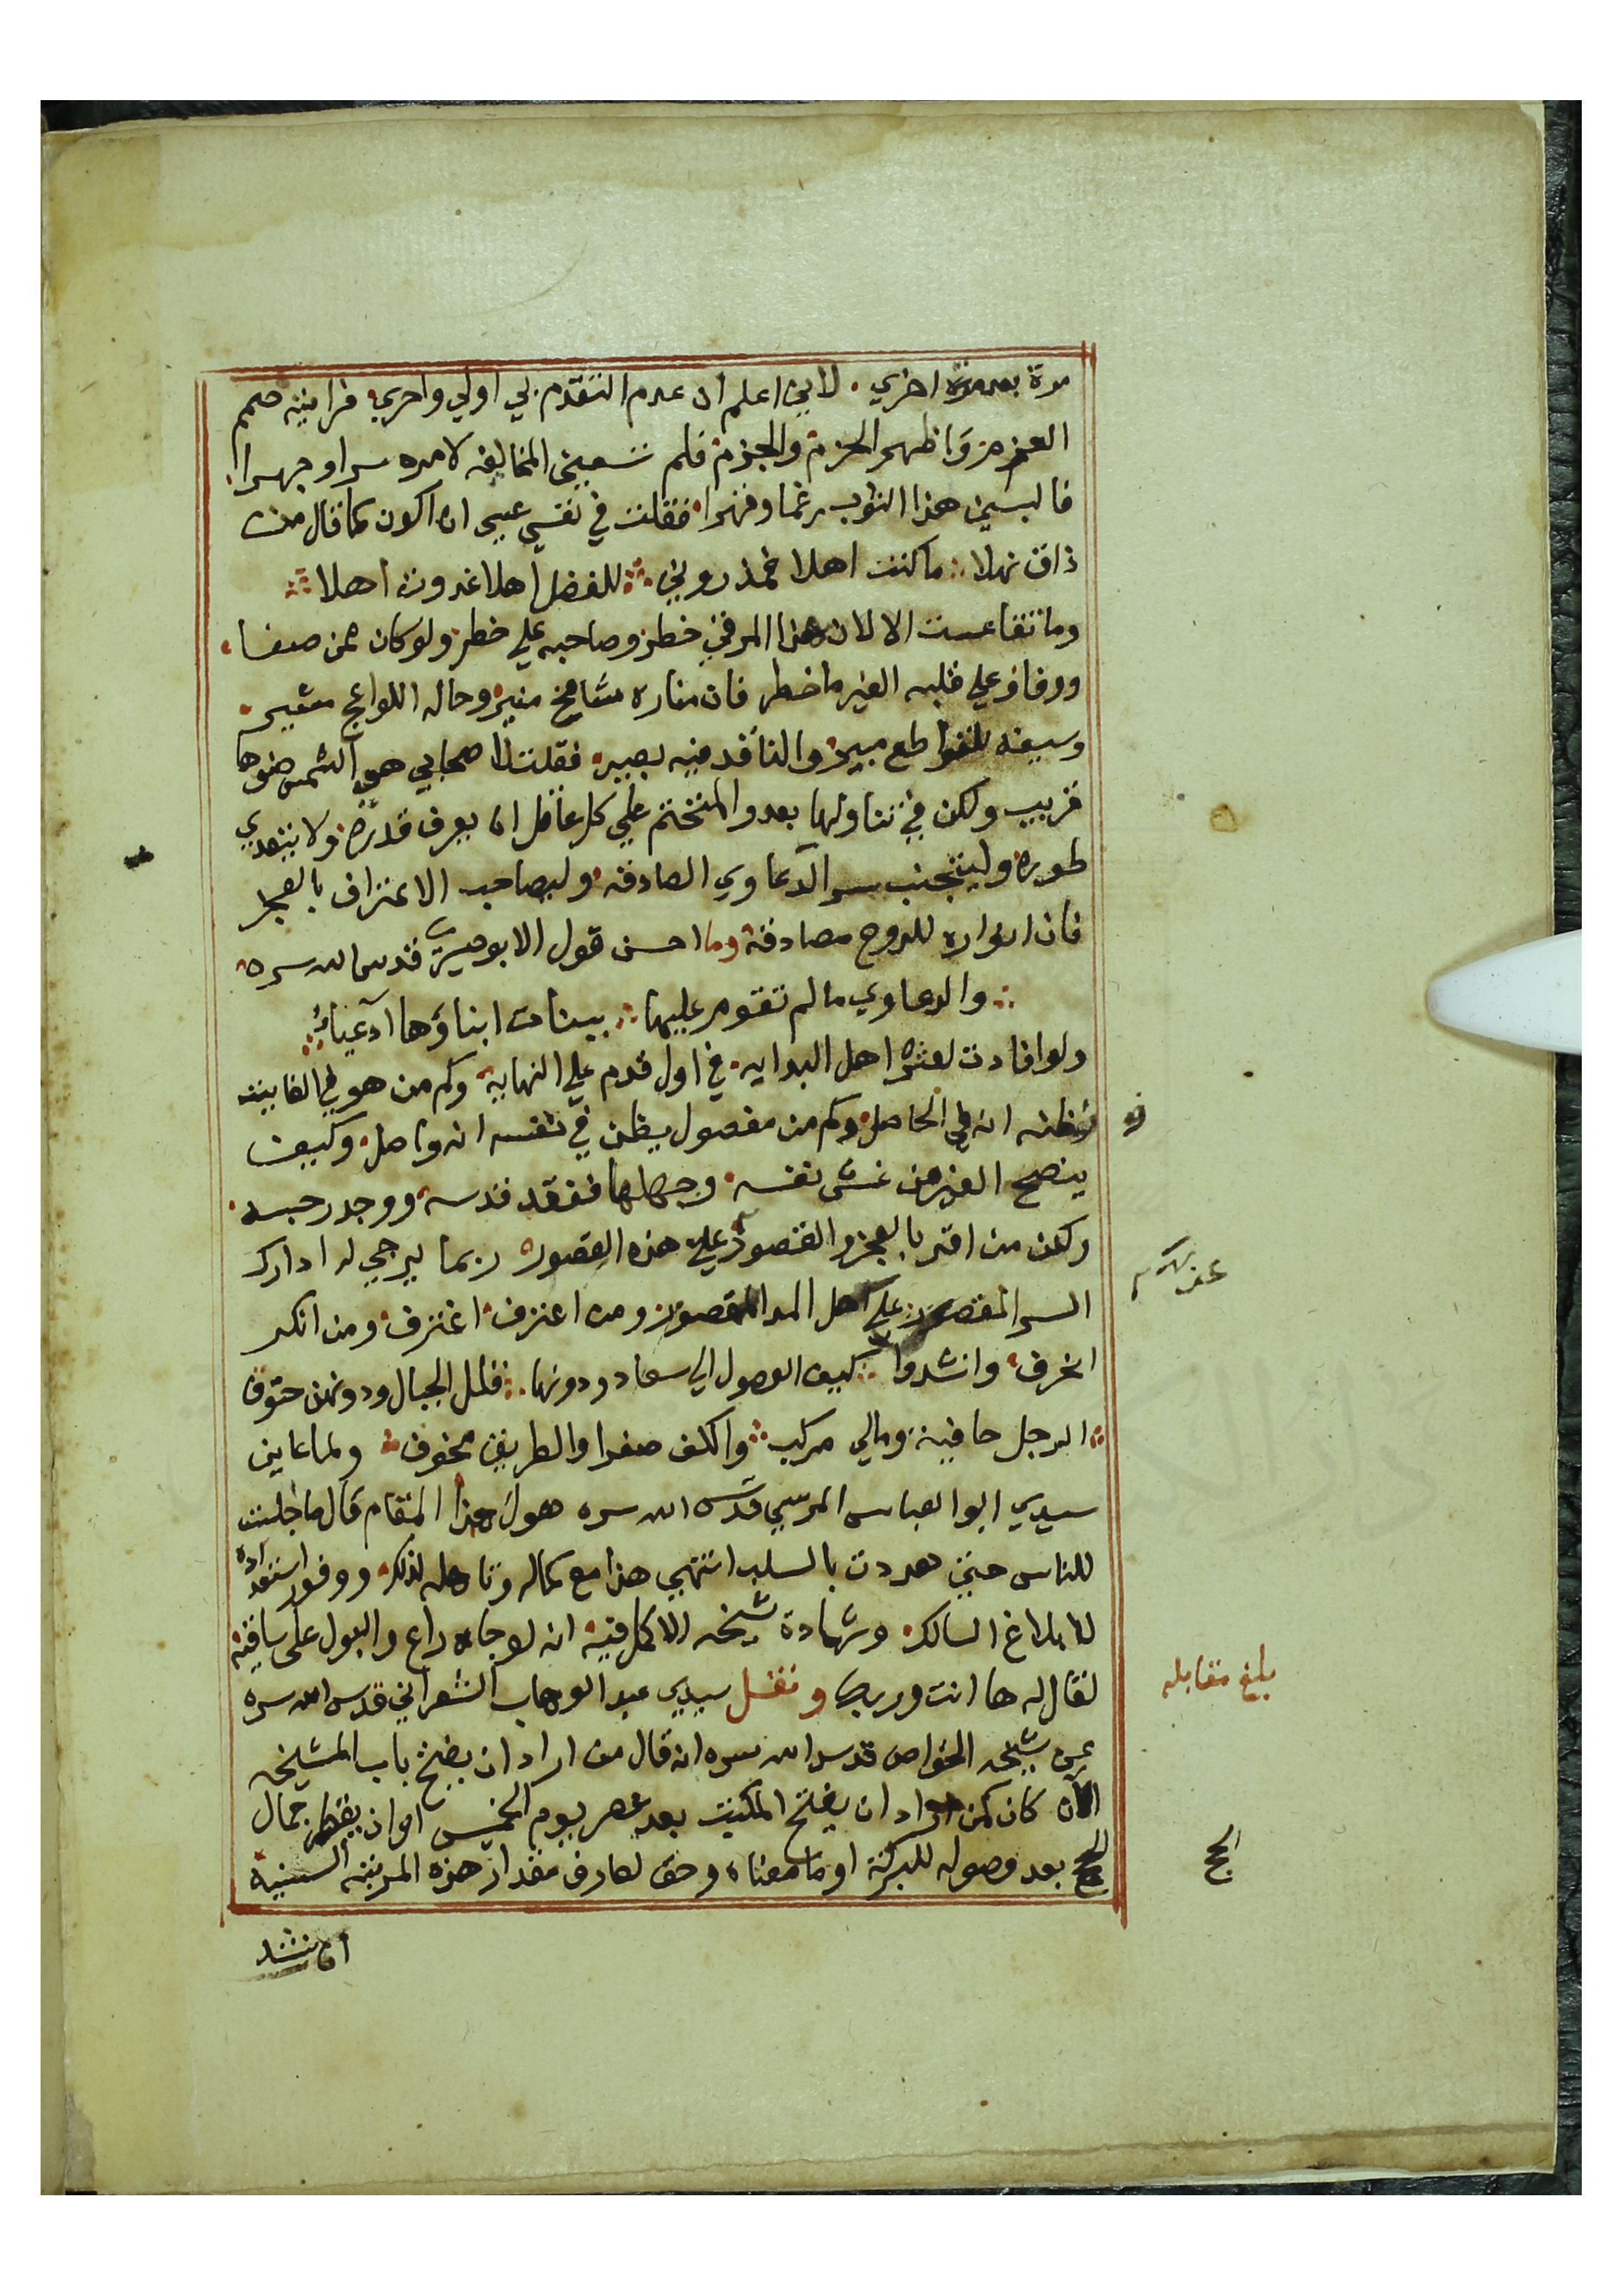 مرة بعد مرة اخري. لاني اعلم ان عدم التقدم بي اولي واحري. فرايته صمم
العزم. واظهر الحزم والجزم. فلم تسعيني المخالفه لامره سرا وجهرا.
فالبسني هذا الثوب رغما وقهرا. فقلت في نفسي عسي ان اكون كما قال من
ذاق نهلا ∴ ما كنت اهلا فمذ روني ∴ للفضل اهلا غدوت اهلا ∴
وما تقاعست الا لان هذا المرقي خطر. وصاحبه علي خطر. ولو كان ممن صفا.
ووفا وعلي قلبه الغير ما خطر. فان مناره شامخ منير. وحاله اللواعج مثير.
وسيفه للقواطع مبير. والناقد فيه بصير. فقلت لاصحابي هي الشمس ضوها
قريب ولكن في تناولها بعد والمتختم علي كل عاقل ان يعرف قدره. ولا يتعدي
طوره. وليتجنب سر الدعاوي الصادقه. وليصاحب الاعتراف بالعجز
فان انواره للروح مصادقة وما احسن قول الابوصيري قدس الله سره.
∴ والدعاوي ما لم تقوم عليها ∴ بينات ابناؤها آدعياء ∴
ولو افادت لعثرة اهل البدايه. في اول قدم علي النهاية. وكم من هو في الفايت
وظنه انه في الحاصل. وكم من مفصول يظن في نفسه انه واصل. وكيف
ينصح الغير من غش نفسه. وجهلها ففقد قدسه. ووجد رحبسه.
ولكن من اقر بالعجز والقصور علي هذه القصور. ربما يرجي له ادارك
السر المقصور. علي اهل المد المقصور. ومن اعترف. اغترف. ومن انكر
انحرف. وانشدوا ∴ كيف الوصول الي سعاد ودونها ∴ قلل الجبال ودونهن حتوف
∴ الرجل حافية ومالي مركب ∴ والكف صفرا والطريق مخوف ∴ ولما عاين
سيدي ابو العباس المرسي قدس الله سره هول هذا المقام قال ما جلست
للناس حتي هددت بالسلب انتهي هذا مع كماله وتاهله لذلك. ووفور استعداده
للابلاغ السالك. وشهادة شيخه الاكمل فيه. انه لو جاه راع والبول علي ساقيه
لقال له ها انت وربك ونقل سيدي عبد الوهاب الشعراني قدس الله سره
عن شيخه الخواص قدس الله سره انه قال من اراد ان يفتح باب المشيخه
الان كان كمن اراد ان يفتح المكتب بعد عصر يوم الخميس او ان يقطر جمال
الحج بعد وصوله للبركة او ما معناه وحق لعارف مقدار هذه المرتبة السنيه
ان ينشد
في
بلغ مقابله
الحج